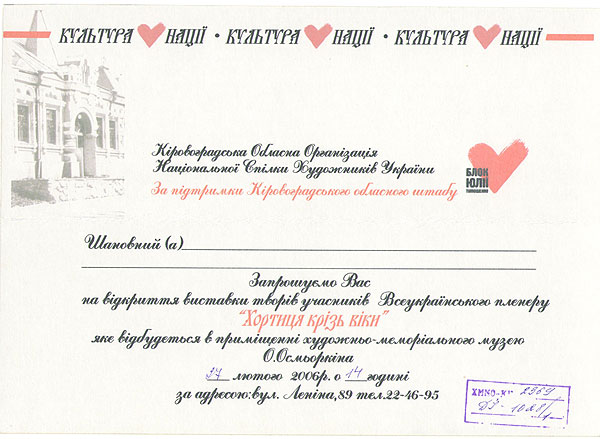 КУЛЬТУРА НАЦІЇ • КУЛЬТУРА НАЦІЇ • КУЛЬТУРА НАЦІЇ
Кіровоградська Обласна Організація
Національної Спілки Художників України
За підтримки Кіровоградського обласного штабу
БЛОК
ЮЛІЇ
ТИМОШЕНКО
Шановний (а)
Запрошуємо Вас
на відкриття виставки творів учасників Всеукраїнського пленеру
"Хортиця крізь віки"
яке відбудеться в приміщенні художньо-меморіального музею
О.Осмьоркіна
лютого 2006р. о 14 годині
за адресою:вул. Леніна,89 тел.22-46-95
2969